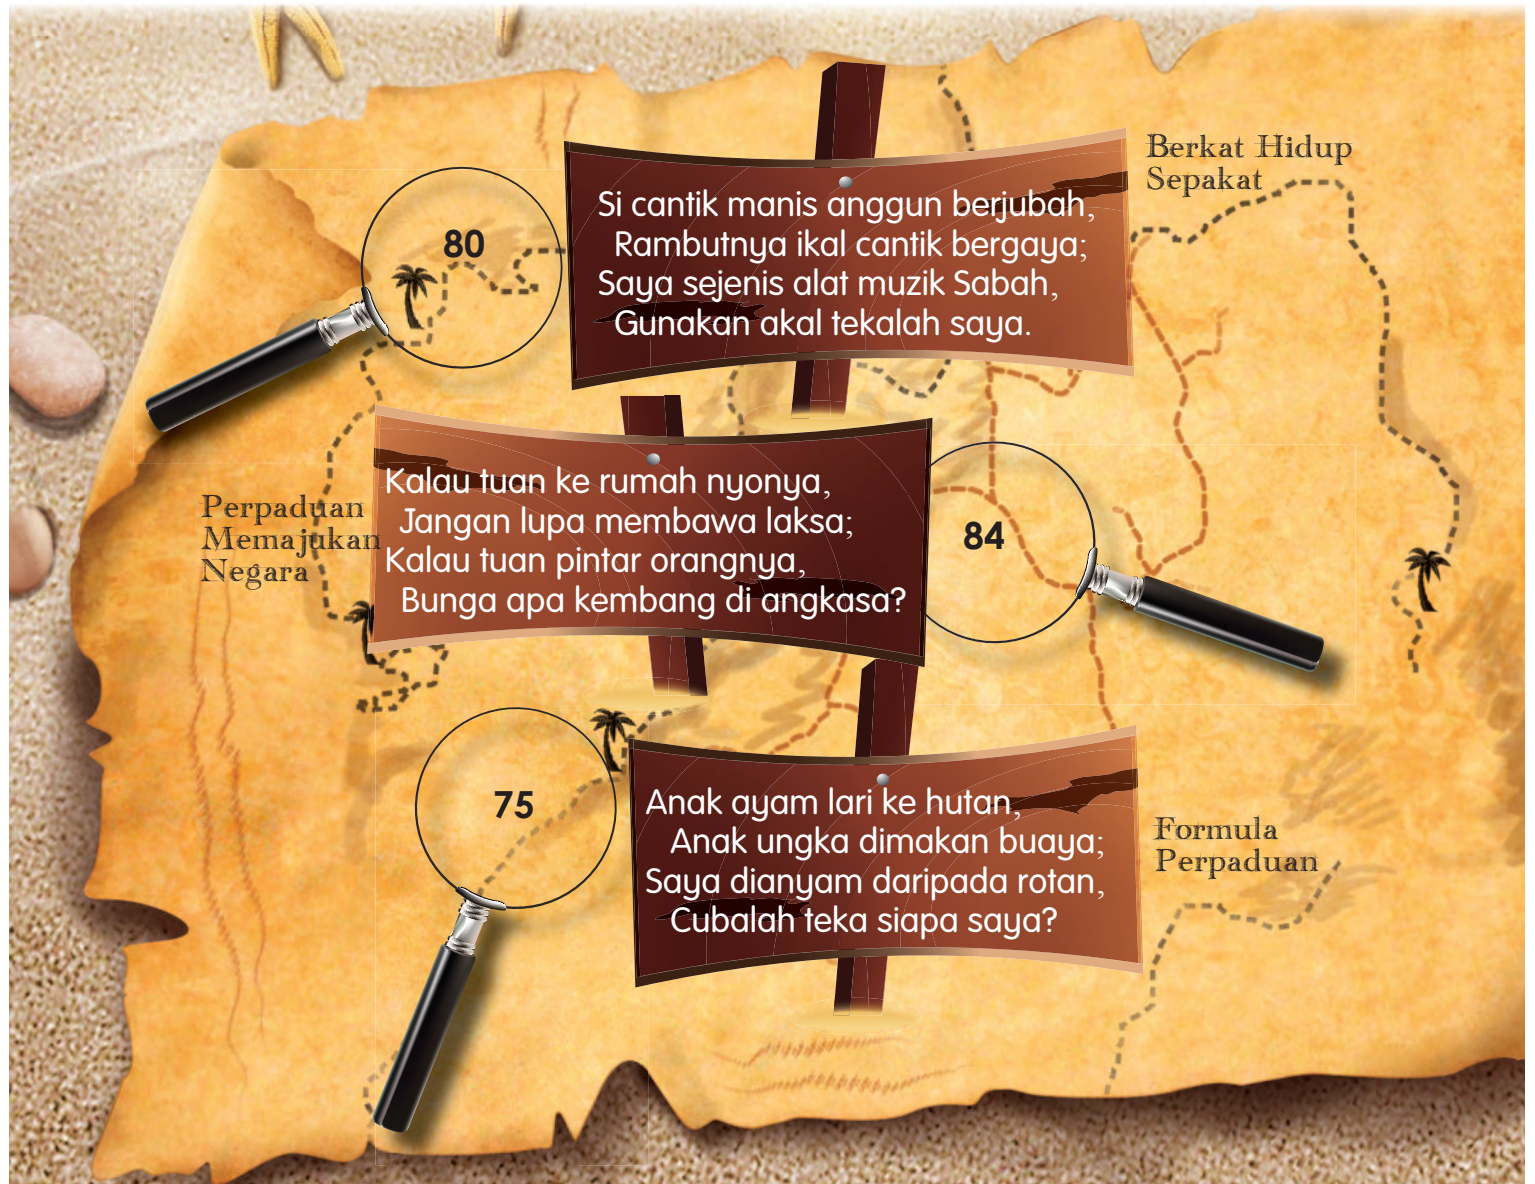 Berkat Hidup
Sepakat
80
Si cantik manis anggun berjubah,
Rambutnya ikal cantik bergaya;
Saya sejenis alat muzik Sabah,
Gunakan akal tekalah saya.
Perpaduan
Memajukan
Negara
Kalau tuan ke rumah nyonya,
Jangan lupa membawa laksa;
Kalau tuan pintar orangnya,
Bunga apa kembang di angkasa?
84
75
Anak ayam lari ke hutan,
Anak ungka dimakan buaya;
Saya dianyam daripada rotan,
Cubalah teka siapa saya?
Formula
Perpaduan